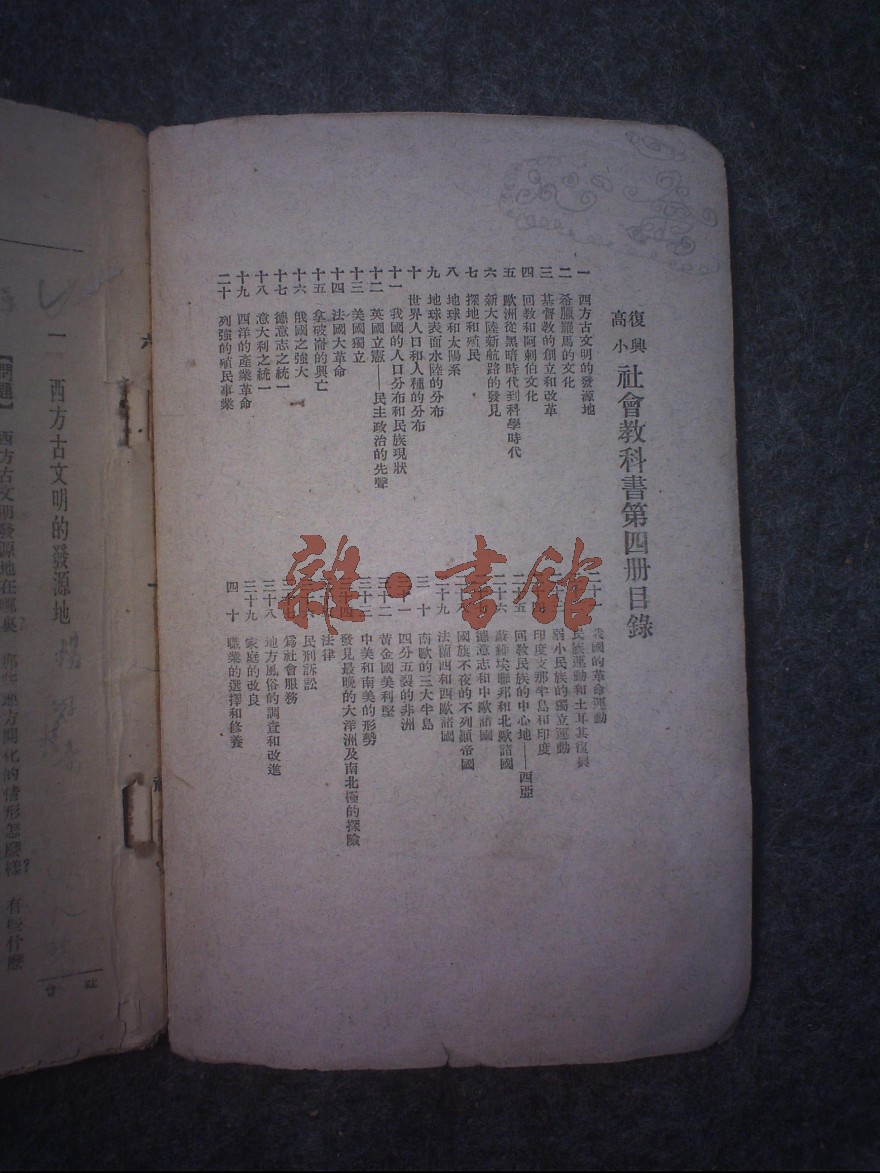 復興
高小
社會教科書第四册目錄
一 西方古文明的發源地
二 希臘羅馬的文化
三 基督教的創立和改革
四 回教和阿剌伯文化
五 歐洲從黑暗時代到科學時代
六 新大陸新航路的發見
七 探地和殖民
八 地球和太陽系
九 地球表面水陸的分布
十 世界人口和人種的分布
十一 我國的人口分布和民族現狀
十二 英國立憲——民主政治的先聲
十三 美國獨立
十四 法國大革命
十五 拿破崙的興亡
十六 俄國之強大
十七 德意志之統一
十八 意大利之統一
十九 西洋的產業革命
二十 列強的殖民事業
二十一 我國的革命運動
民族運動和土耳其復興
弱小民族的獨立運動
印度支那半島和印度
二十五 回教民族的中心地——西亞
二十六 蘇維埃聯邦和北歐諸國
德意志和中歐諸國
二十八 國族不夜的不列顛帝國
二十九 法蘭西和西歐諸國
三十 南歐的三大半島
三十一 四分五裂的非洲
三十二 黃金國美利堅
三十三 中美和南美的形勢
三十四 發見最晚的大洋洲及南北極的探險
法律
民刑訴訟
爲社會服務
三十八 地方風俗的調查和改進
三十九 家庭的改良
四十 職業的選擇和修養
雜·書館
一 西方古文明的發源地
【問題】 西方古文明發源地在哪裏？ 那些地方開化的情形怎麼樣？ 有些什麼
社會